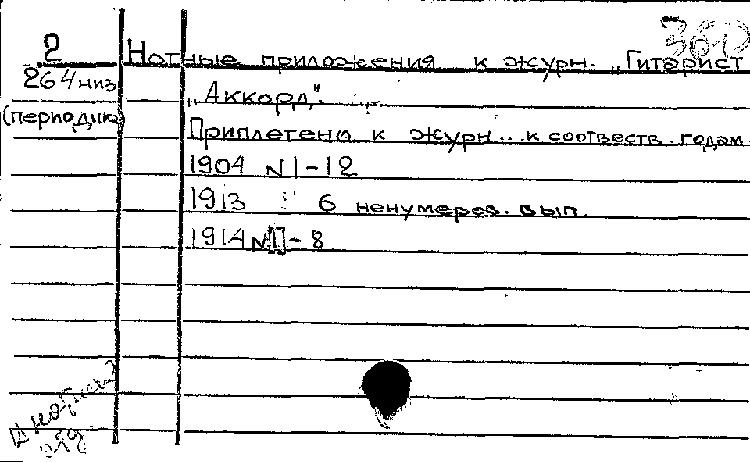 2
264 низ
(периодика)
Нотные приложения к журн. „Гитарист
„Аккорд".
Приплетены к журн... к соотвеств. годам
1904 N 1-12
1913 6 ненумеров. вып.
1914 N 1-8